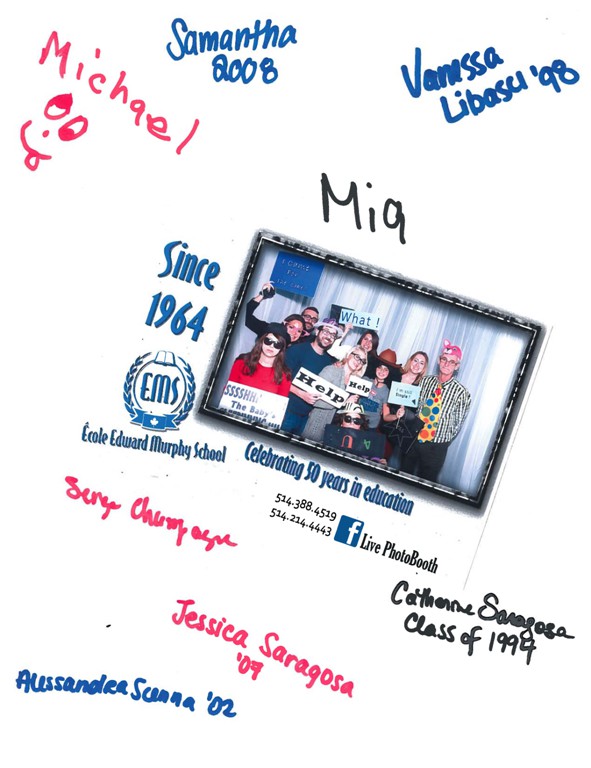 Michael
Samantha
2008
Vanessa
Libasci '98
Mia
Since
1964
EMS
École Edward Murphy School
I Came
For
What !
Help
Help
I'm still
Single!
SSSSHH!
The Baby's
Celebrating 50 years in education
514.388.4519
514.214.4443
f Live PhotoBooth
Serge Champagne
Catherine Saragosa
Class of 1994
Jessica Saragosa
'07
Alessandra Scenna '02